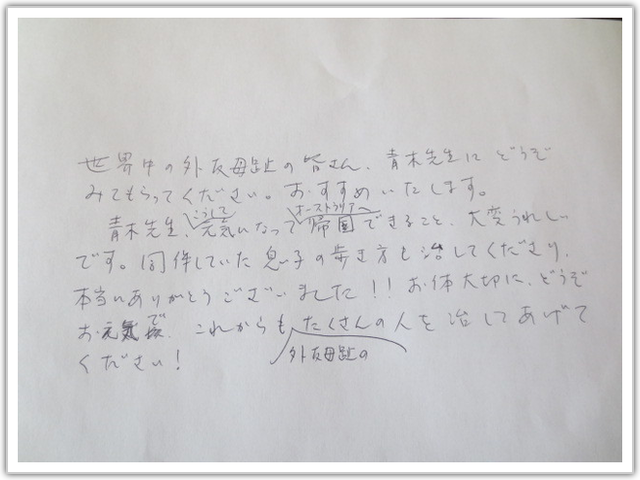 世界中の外反母趾の皆さん、青木先生にどうぞ
みてもらってください。おすすめいたします。
青木先生、こうして元気になってオーストラリアへ帰国できること、大変うれしい
です。同伴していた息子の歩き方も治してくださり、
本当にありがとうございました!!お体大切に、どうぞ
お元気で、これからも外反母趾のたくさんの人を治してあげて
ください!